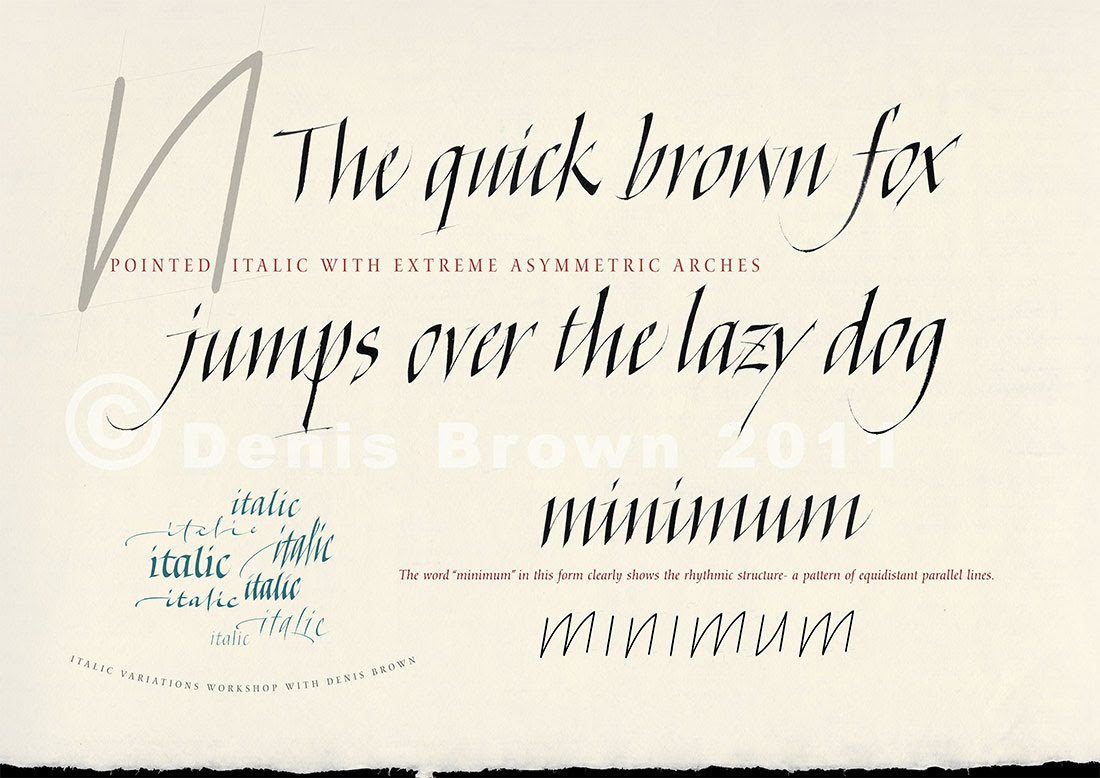 n
The quick brown fox
POINTED ITALIC WITH EXTREME ASYMMETRIC ARCHES
jumps over the lazy dog
© Denis Brown 2011
italic
italic
italic italic
italic
italic
italic
italic
ITALIC VARIATIONS WORKSHOP WITH DENIS BROWN
minimum
The word “minimum” in this form clearly shows the rhythmic structure- a pattern of equidistant parallel lines.
minimum